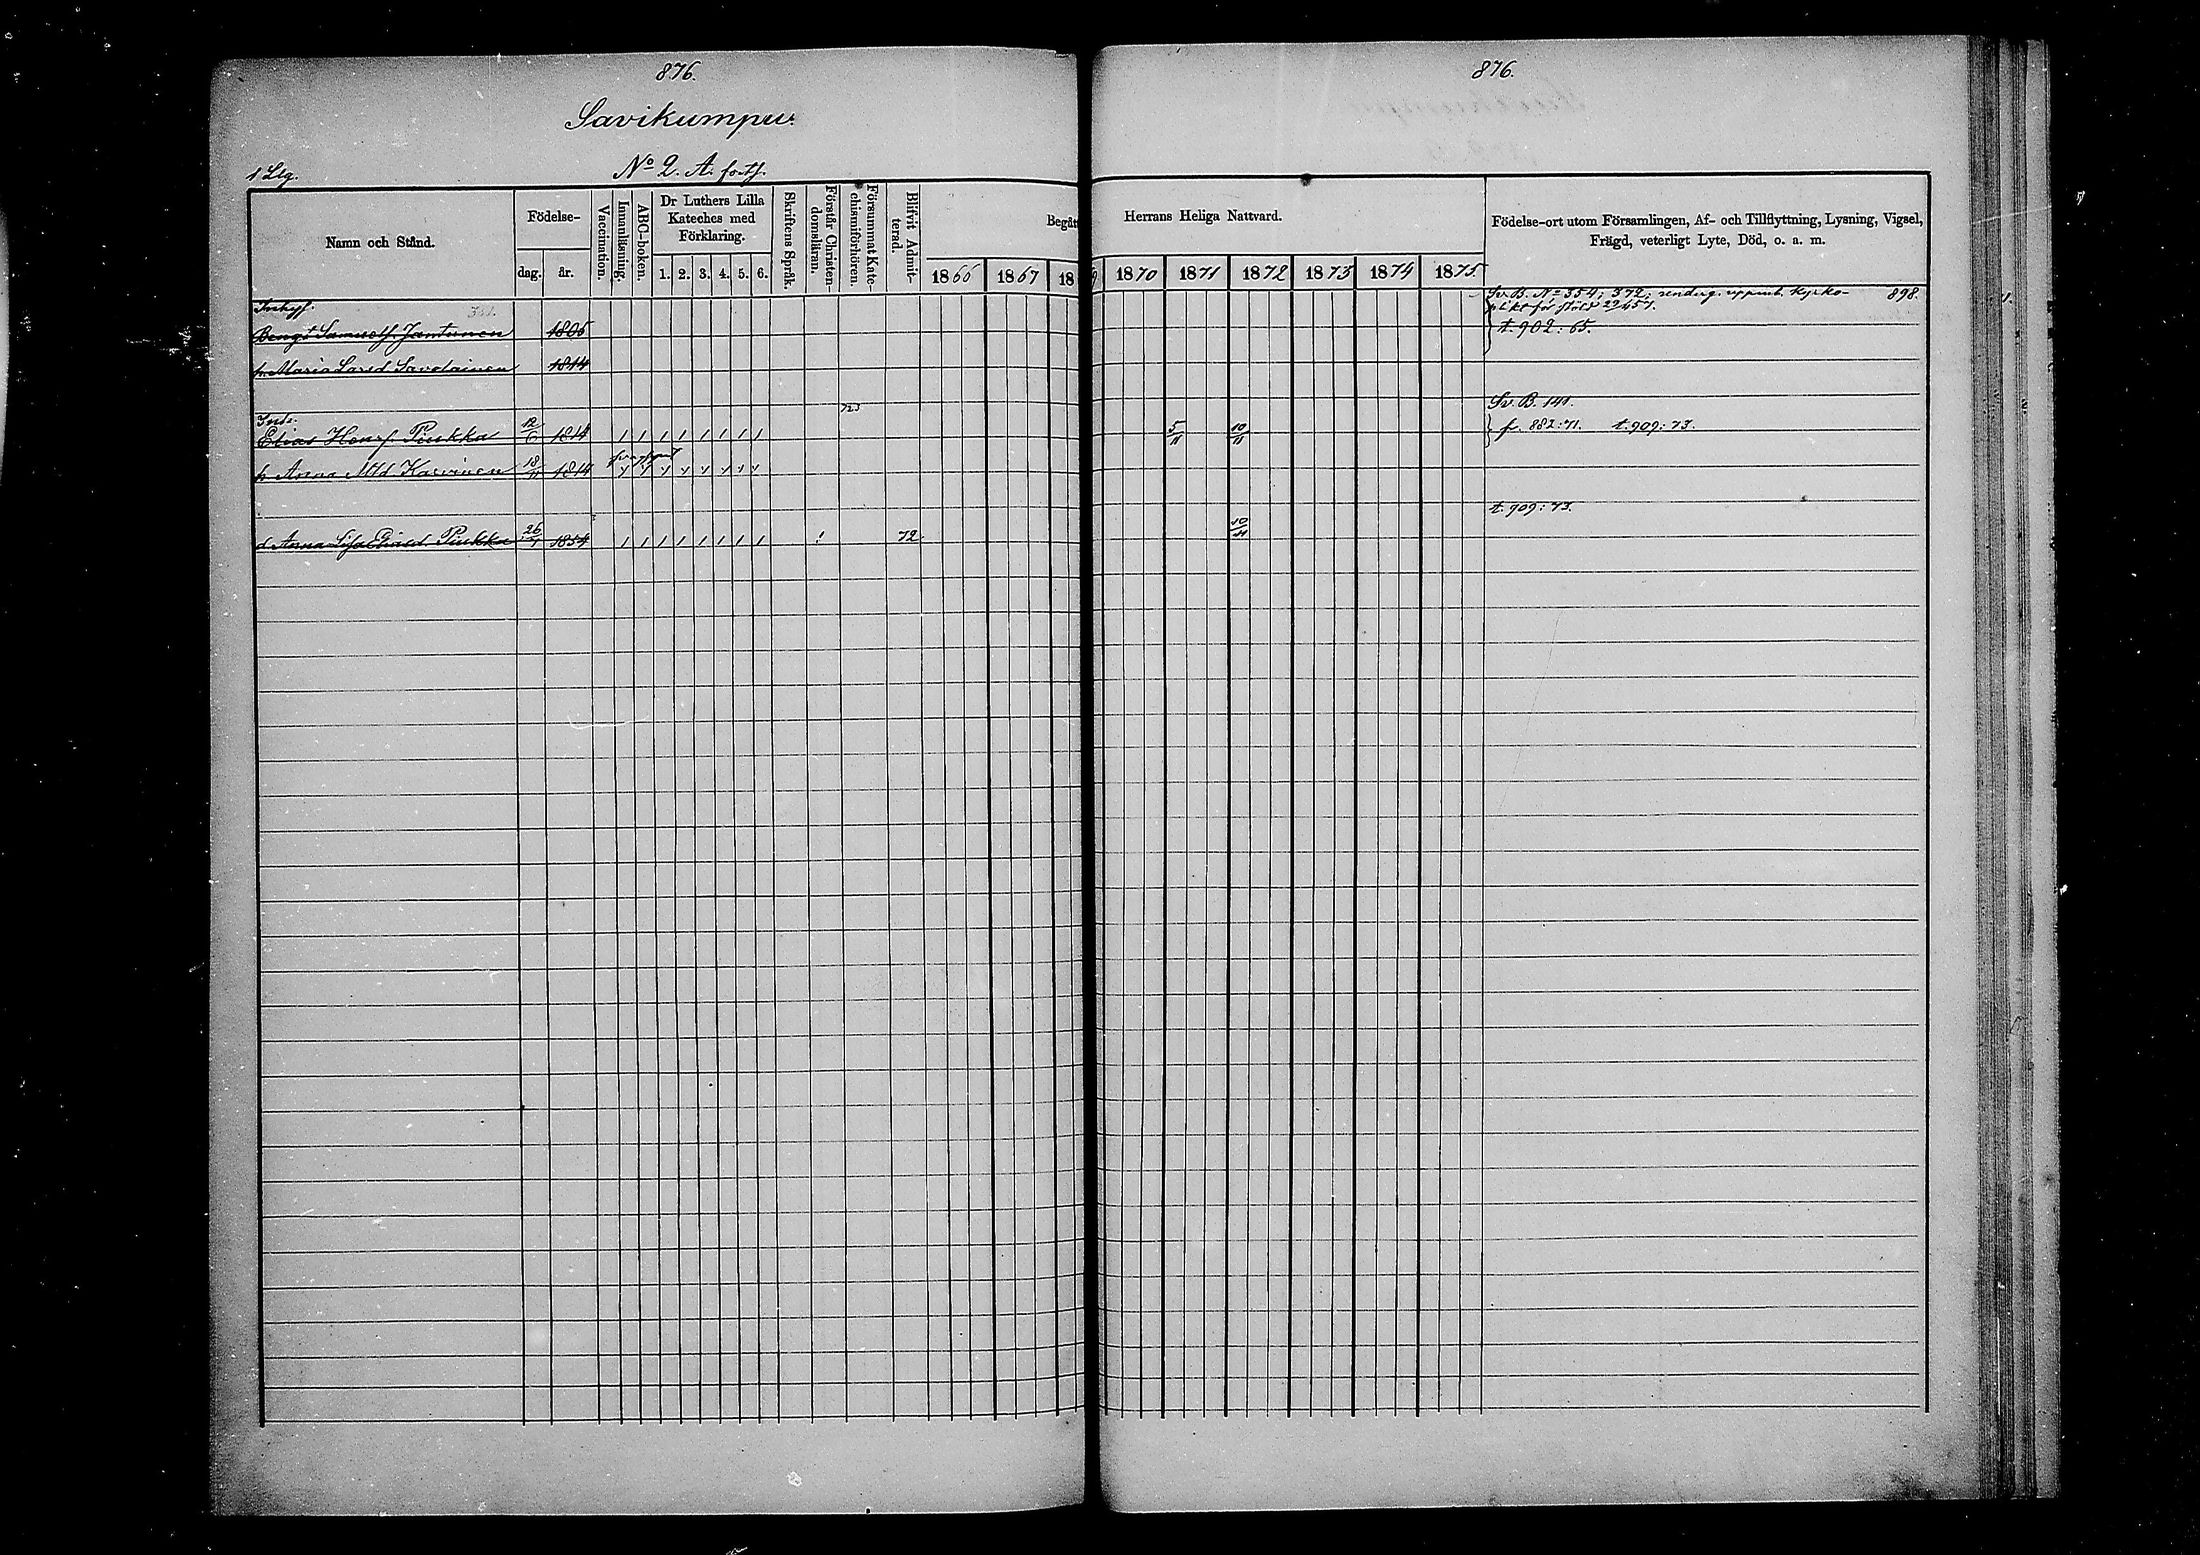 876.
Savikumpu.
1 Llg.
No 2. A. forts.
Namn och Stånd.
Födelse-
dag. år.
Vaccination.
Innanläsning.
ABC-boken.
Dr Luthers Lilla
Kateches med
Förklaring.
1. 2. 3. 4. 5. 6.
Skriftens Språk.
Förstår Christen-
domsläran.
Försummat Kate-
chismiförhören.
Blifvit Admit-
terad.
Begått
1866 1867 18
Inhys.
Bengt Samuelss. Jantunen 1805
h. Maria Larsd Savolainen 1814
723
Inh:
Elias Henrss. Piukka 12/6 1814 / / / / / / / /
h Anna Mtd Karvinen 18/11 1814
d. Anna Lisa Eliasd. Piukka 26/1 1854 / / / / / / / / 72
876.
Herrans Heliga Nattvard.
1870 1871 1872 1873 1874 1875
Födelse-ort utom Församlingen, Af- och Tillflyttning, Lysning, Vigsel,
Frägd, veterligt Lyte, Död, o. a. m.
Sv. B. No 354; 372; underg. uppenb. kyrko- 898.
plikt för stöld
t. 902: 65.
Sv. B. 140.
5/11 10/11 fr. 882:71. t. 909: 73.
t. 909: 73.
10/11